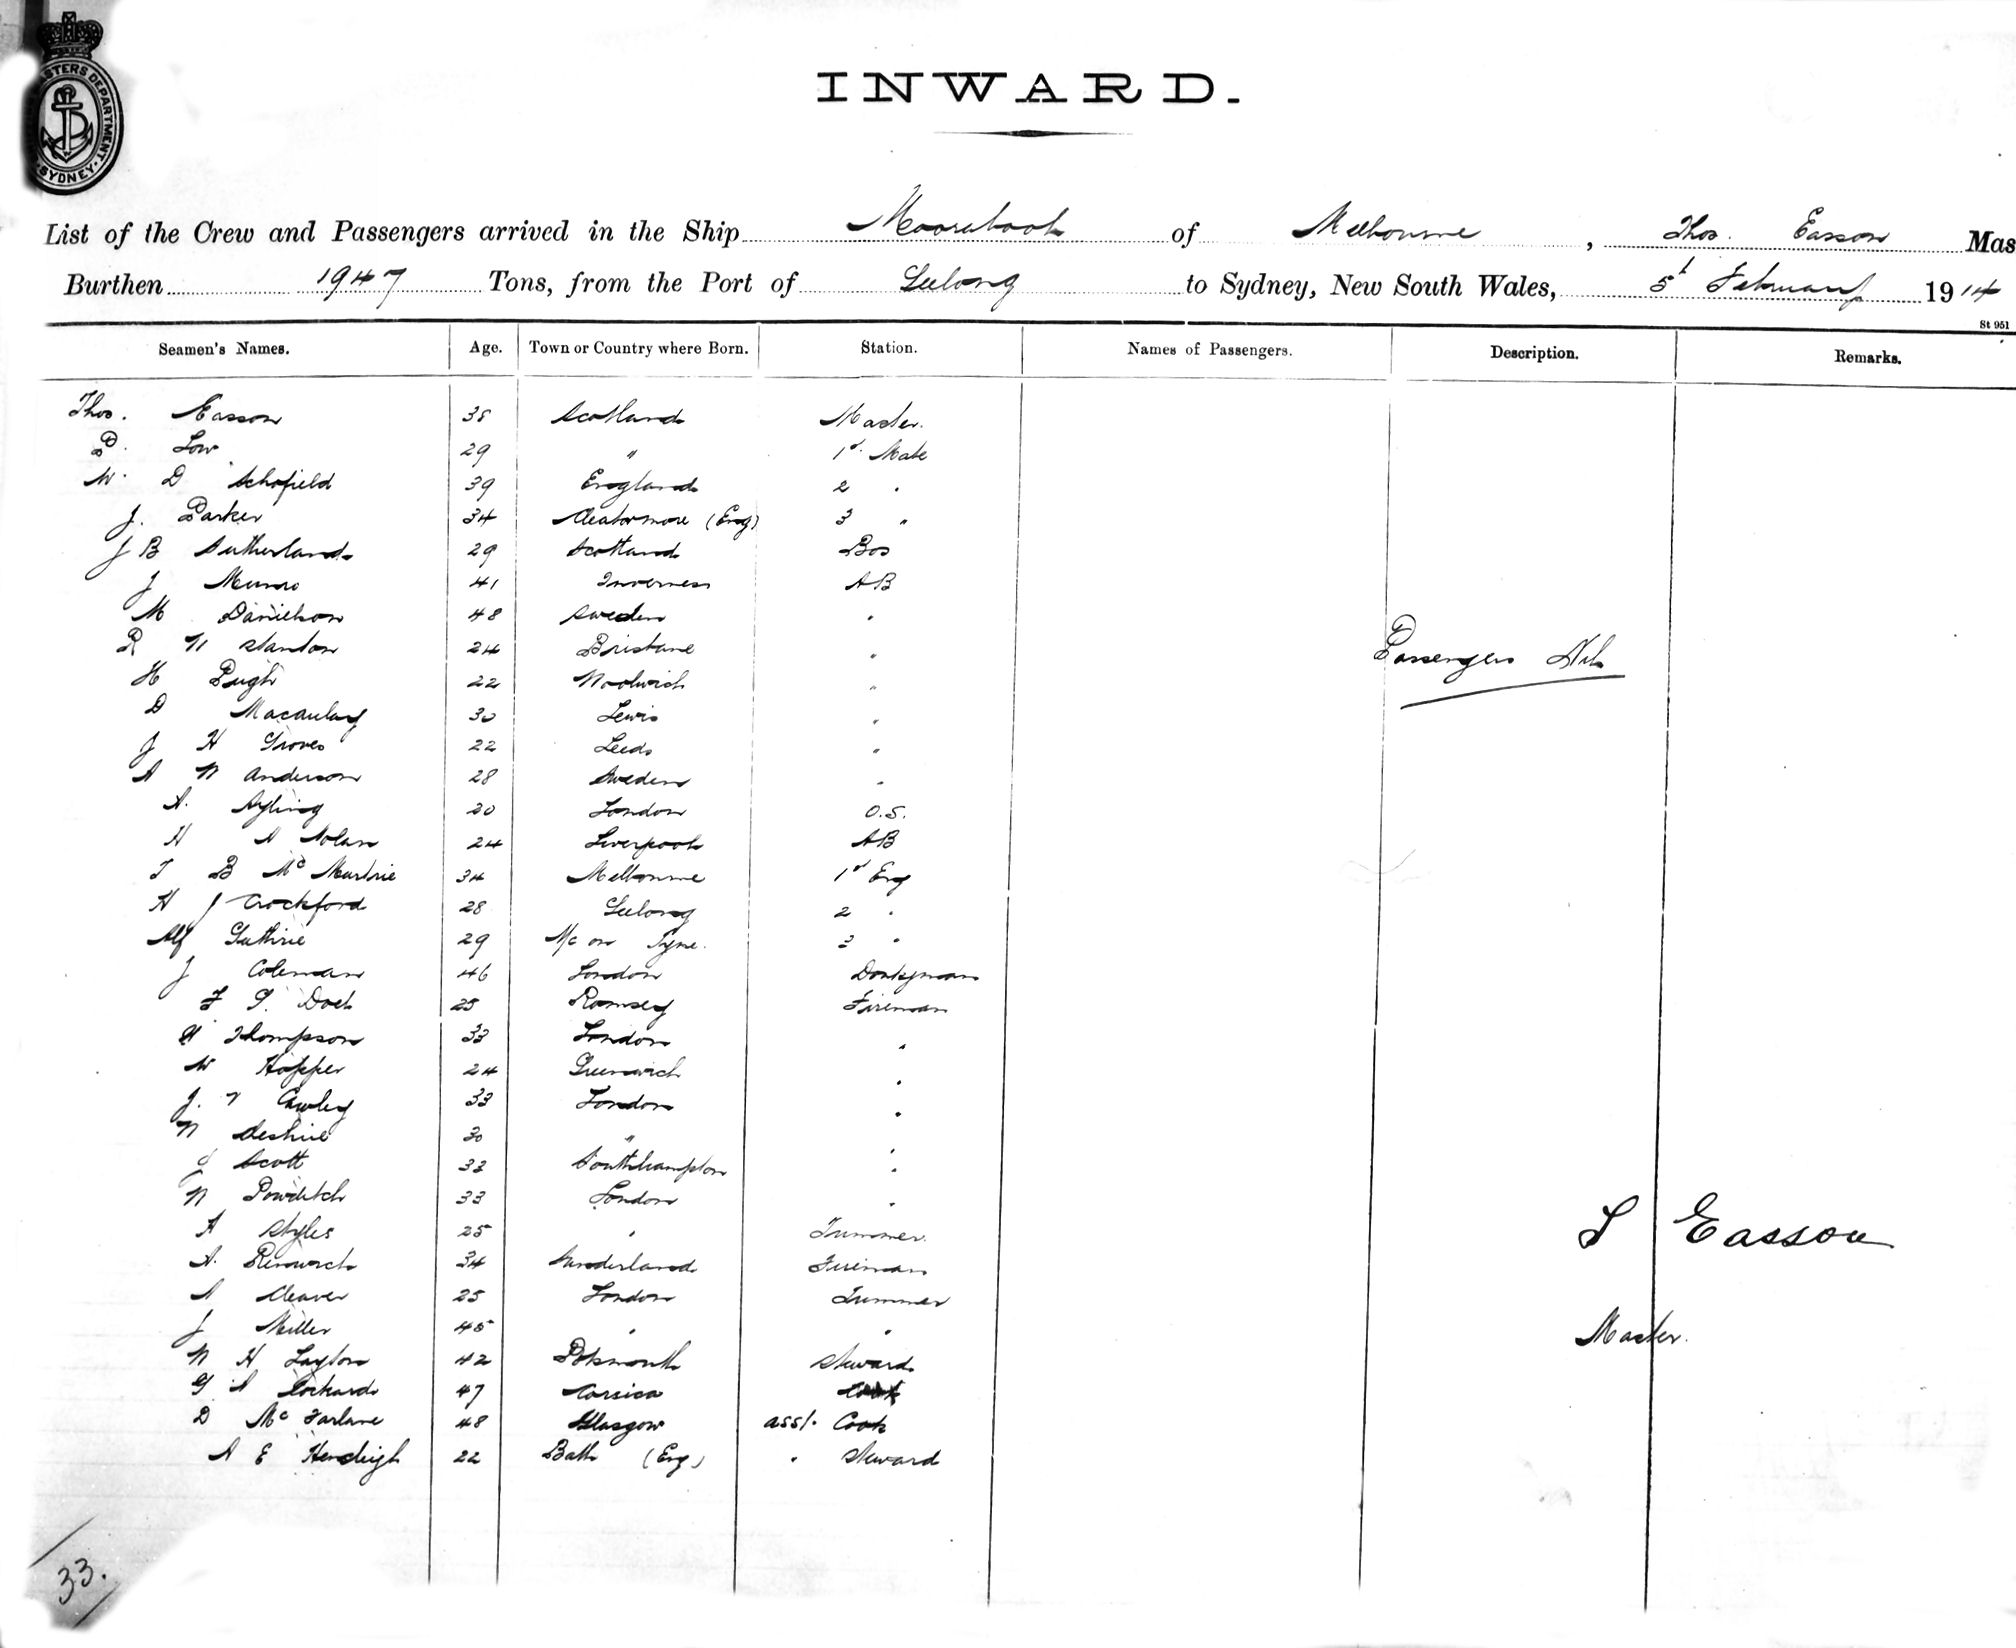 MASTERS DEPARTMENT. SYDNEY.
INWARD.
List of the Crew and Passengers arrived in the Ship Moorabool of Melbourne, Thos. Easson Mas
Burthen 1947 Tons, from the Port of Geelong to Sydney, New South Wales, 5th February 1914
St 951
Seamen's Names. Age. Town or Country where Born. Station. Names of Passengers. Description. Remarks.
Thos. Easson 38 Scotland Master.
P. Low 29 " 1st Mate
W. D Schofield 39 England 2 "
J. Parker 34 Cleatormore (Eng) 3 "
J B Sutherland 29 Scotland Bos
J Munro 41 Inverness AB
M Danielson 48 Sweden "
R W Stanton 24 Brisbane "
Passengers Nil
H Pugh 22 Woolwich "
D Macaulay 30 Lewis "
J H Groves 22 Leeds "
A W Anderson 28 Sweden "
A. Ayling 20 London O.S.
H A Nolan 24 Liverpool AB
T B Mc Murtrie 34 Melbourne 1st Eng
H J Crockford 28 Geelong 2 "
Alf Guthrie 29 N/c on Tyne. 3 "
J Coleman 46 London Donkyman
F G. 25 Ramsey Fireman
Thompson 33 London "
W Hopper 24 Greenwich "
J. Cawley 33 London "
W 30 "  "
J Scott 33 Southhampton "
W Powditch 33 London "
A Styles 25 " Trimmer.
A. Renwick 34 Sunderland Fireman
T Easson
A Cleaver 25 London Trimmer
J Miller 45 " "
Master.
W H Layton 42 Potsmouth Steward
G A Lockard 47 Corsica Cook
D Mc Farlane 48 Glasgow asst. Cook
A E Hendeigh 22 Bath (Eng) " Steward
33.